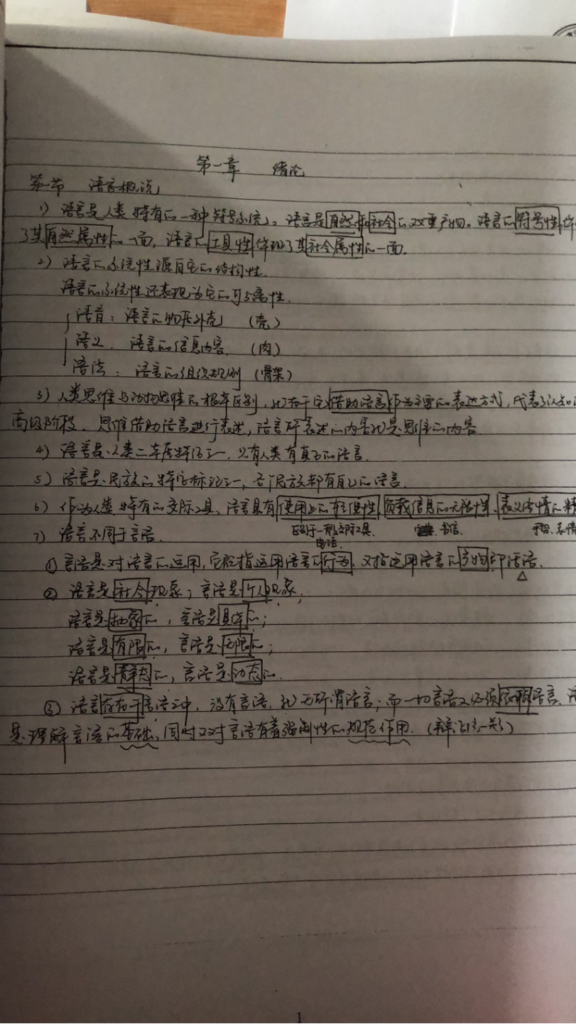 第一章 绪论
第一节 语言概说
1) 语言是人类特有的一种符号系统。语言是自然和社会的双重产物。语言的符号性体
了其自然属性的一面,语言的工具性体现了其社会属性的一面。
2) 语言的系统性源自它的结构性.
语言的系统性还表现为它的可分离性.
语音:语言的物质外壳 (壳)
语义:语言的信息内容 (肉)
语法:语言的组织规则 (骨架)
3) 人类思维与动物思维的根本区别,就在于它借助语言作为主要的表达方式,代表了认知的
高级阶段. 思维借助语言进行表述,语言所表述的内容就是思维的内容
4) 语言是人类的本质特征之一,只有人类有真正的语言.
5) 语言是民族的特定标记之一,各民族都有自己的语言.
6) 作为人类特有的交际工具,语言具有使用上的方便性 负载信息的无限性、表义传情的
区别于一般交际工具. 书信.
电话.
7) 语言不同于言语.
① 言语是对语言的运用,它既指运用语言的行为,又指运用语言的产物即话语.
② 语言是社会现象;言语是个人现象;
语言是抽象的,言语是具体的;
语言是有限的,言语是无限的;
语言是静态的,言语是动态的.
③ 语言存在于言语之中,没有言语,就无所谓语言;而一切言语又必须依赖语言、语
是理解言语的基础,同时又对言语有着强制性的规范作用. (辩证统一关系)
1